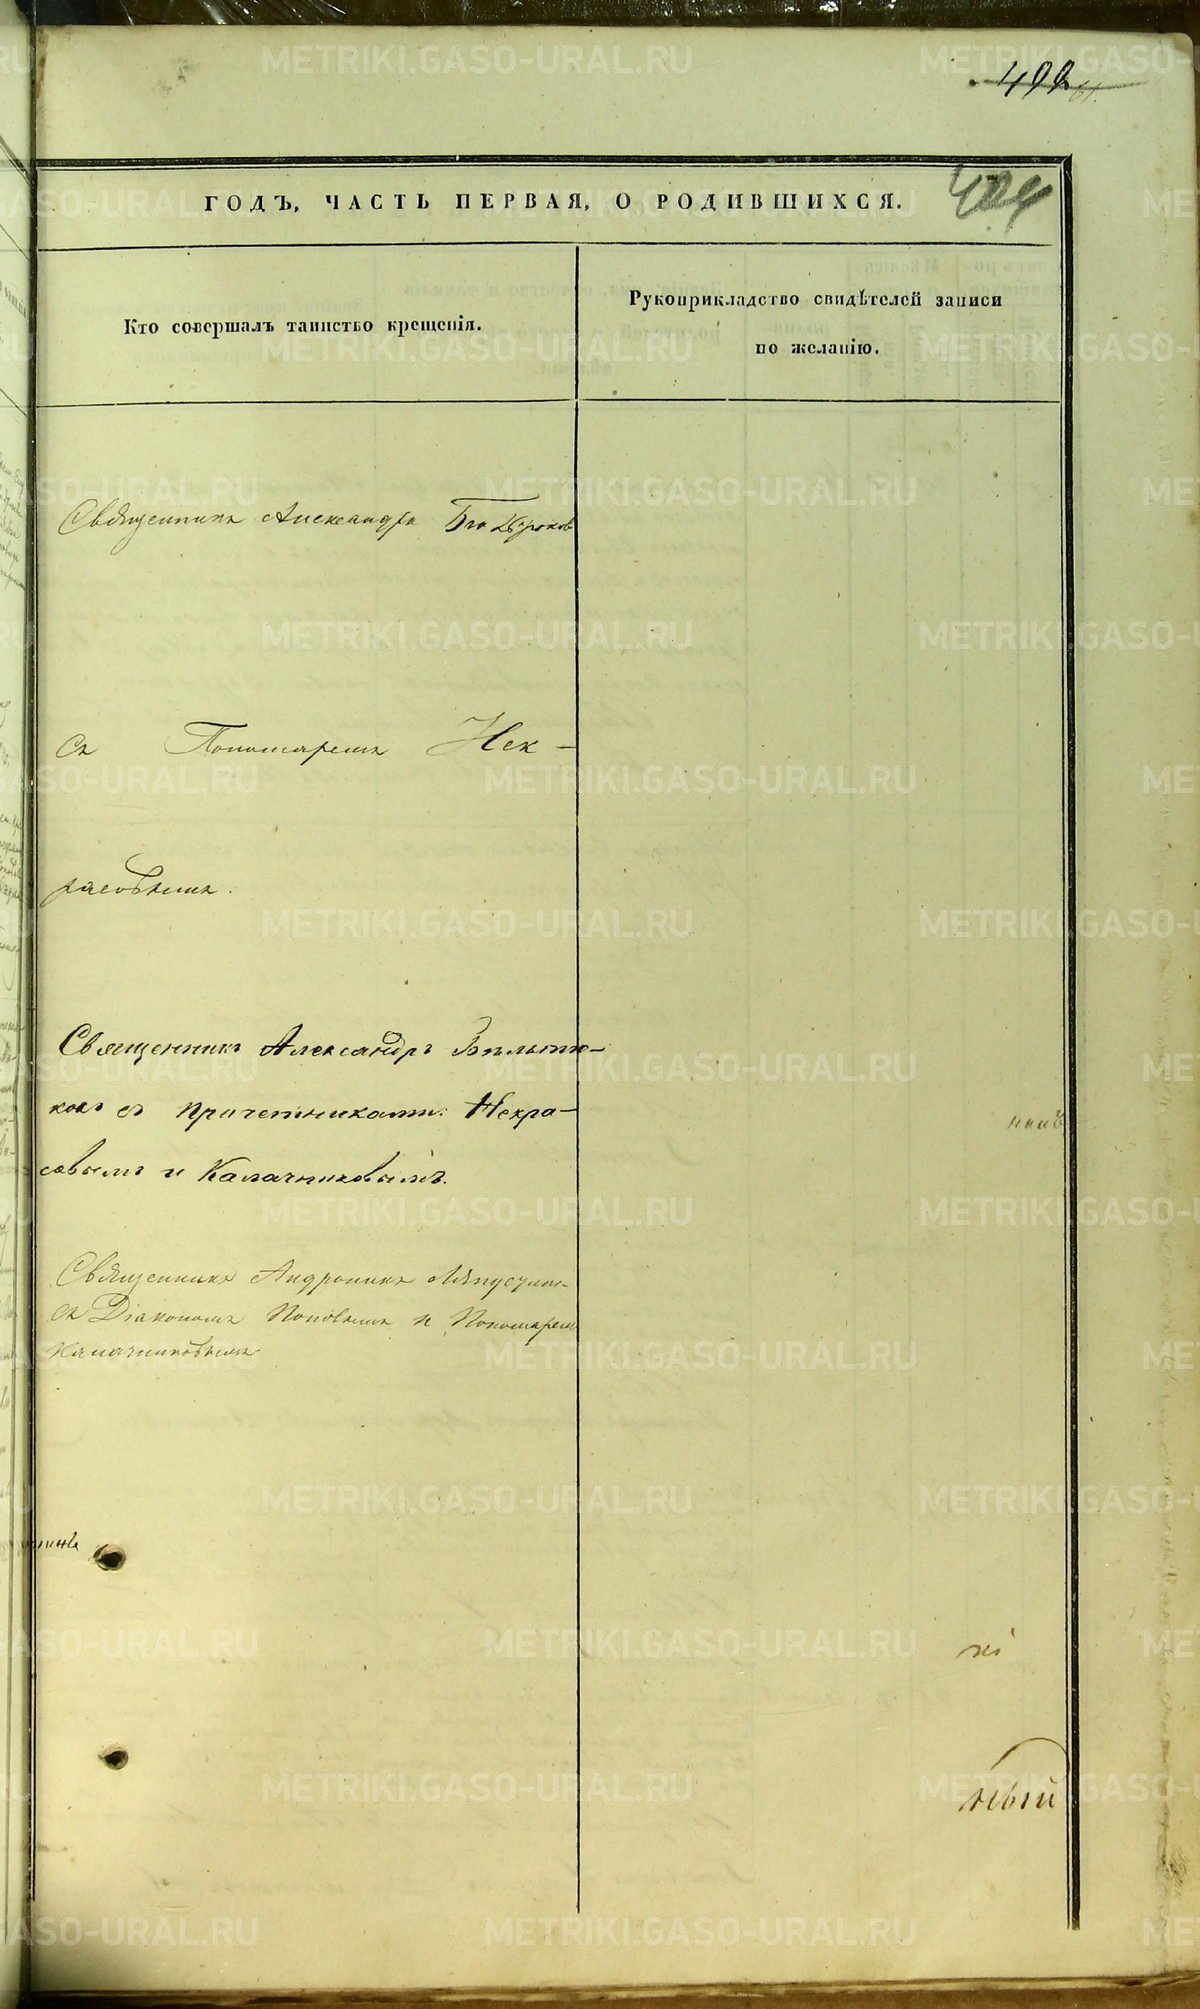 499
ГОДЪ, ЧАСТЬ ПЕРВАЯ, О РОДИВШИХСЯ.
Кто совершалъ таинство крещенія.
Рукоприкладство свидѣтелей записи
по желанію.
Священникъ Александръ
Съ Пономаремъ Нек-
расовымъ.
Священникъ Александръ
ковъ съ причетниками: Некра-
совымъ и Калачниковымъ.
Священникъ Андроникъ
съ Діакономъ Поповымъ и Пономаремъ
Калачниковымъ
METRIKI.GASO-URAL.RU